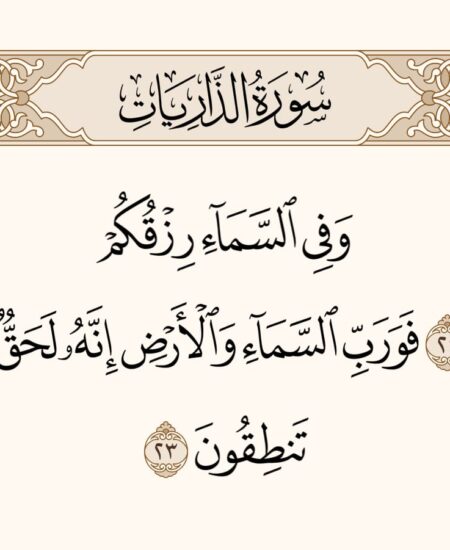 سُورَةُ الذَّارِيَاتِ
وَفِي ٱلسَّمَآءِ رِزۡقُكُمۡ
فَوَرَبِّ ٱلسَّمَآءِ وَٱلۡأَرۡضِ إِنَّهُۥ لَحَقّٞ
تَنطِقُونَ ٢٣